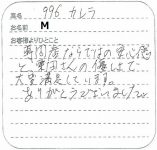 車名 996 カレラ
お名前 M
お客様よりひとこと
専門店ならではの安心感
と 栗田さんの優しさで
大変満足しています。
ありがとうございました。